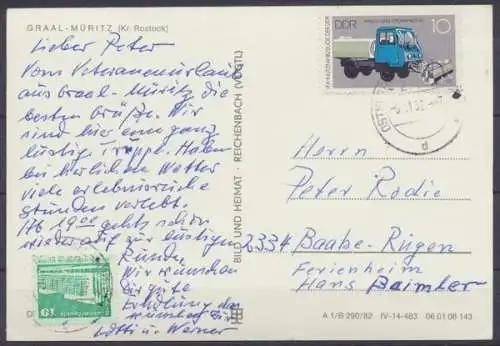 GRAAL-MÜRITZ (Kr. Rostock)
Lieber Peter
Vom Veteranenurlaub
aus Graal-Müritz die
besten Grüße. Wir
sind hier eine ganz
lustige Truppe. Haben
bei herlichen Wetter
viele erlebnisreiche
Stunden verlebt.
Ab 19 00 gehts schon
wieder auf zur lustigen
Runde.
Wir wünschen
gute
Erholung
Lotti u Werner
BILD UND HEIMAT · REICHENBACH (VOGTL)
DDR 10
Herrn
Peter Rodie
2334 Baabe-Rügen
Ferienheim
Hans Baimler
A 1/B 290/82 IV-14-483 06 01 08 143